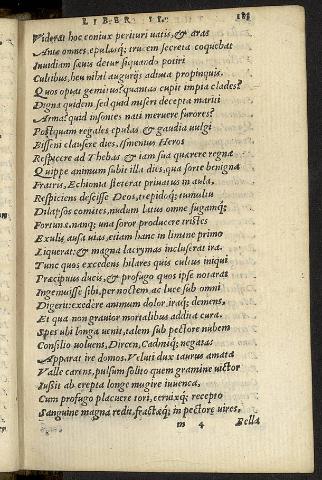 LIBER II.
Viderat hoc coniux perituri uatis, & aras
Ante omnes, epulasq́; trucem secreta coquebat
Inuidiam sæuis detur siquando potiri
Cultibus, heu nihil augurijs adiuta propinquis.
Quos optat gemitus? quantas cupit impia clades?
Digna quidem, sed quid miseri decepta mariti
Arma? quid insontes nati meruere furores?
Postquam regales epulas & gaudia uulgi
Bisseni clausere dies, Ismenius Heros
Respicere ad Thebas & iam sua quærere regna
Quippe animum subit illa dies, qua sorte benigna
Fratris, Echionia steterat priuatus in aula,
Respiciens descisse Deos, trepidoq́; tumultu
Dilapsos comites, nudum latus omne fugamq́;
Fortunæ. nanq; una soror producere tristes
Exulis ausa uias, etiam hanc in limine primo
Liquerat: & magna lacrymas incluserat ira.
Tunc quos excedens hilares quis cultus iniqui
Præcipuus ducis, & profugo quos ipse notarat
Ingemuisse sibi, per noctem ac luce sub omni
Digerit: exedere animum dolor, iraq́; demens,
Et qua non grauior mortalibus addita cura.
Spes ubi longa uenit, talem sub pectore nubem
Consilio uoluens, Dircen, Cadmiq́; negatas
Apparat ire domos. Veluti dux taurus amata
Valle carens, pulsum solito quem gramine uictor
Iussit ab erepta longe mugire iuuenca,
Cum profugo placuere tori, ceruixq́; recepto
Sanguine magna redit, fractæq́; in pectore uires,
m 4 Bella